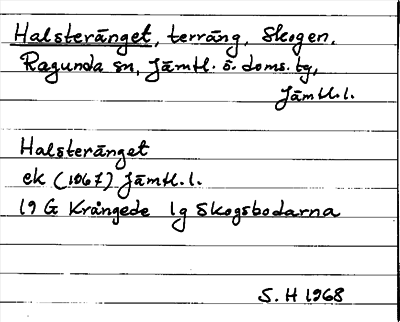 Halsteränget, terräng, Skogen,
Ragunda sn, Jämtl. ö. doms. tg,
Jämtl.l.
Halsteränget
ek (1067) Jämtl.l.
19 G Krångede 1g Skogsbodarna
S. H 1968